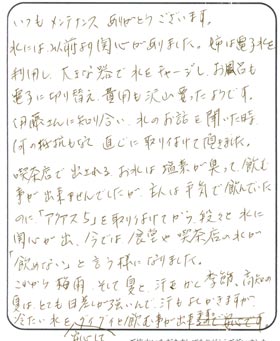 いつもメンテナンスありがとうございます。
水には以前より関心がありました。姉は電子水を
利用し、大きな器で水をチャージし、お風呂も
電子に切り替え、費用も沢山使ったようです。
伊藤さんに知り合い、水のお話を聞いた時、
何の抵抗もなく直じに取り付けて頂きました。
喫茶店で出されるお水は塩素が臭って、飲む
事が出来ませんでしたが、主人は平気で飲んでいた
のに「アクアス5」を取り付けてから段々と水に
関心が出、今では食堂や喫茶店の水が
「飲めない」と言う様になりました。
これから梅雨、そして夏と、汗をかく季節、高知の
夏は、とても日差しが強いんで、汗もよくかきますが、
冷たい水をグイグイと飲む事が出来
安心して